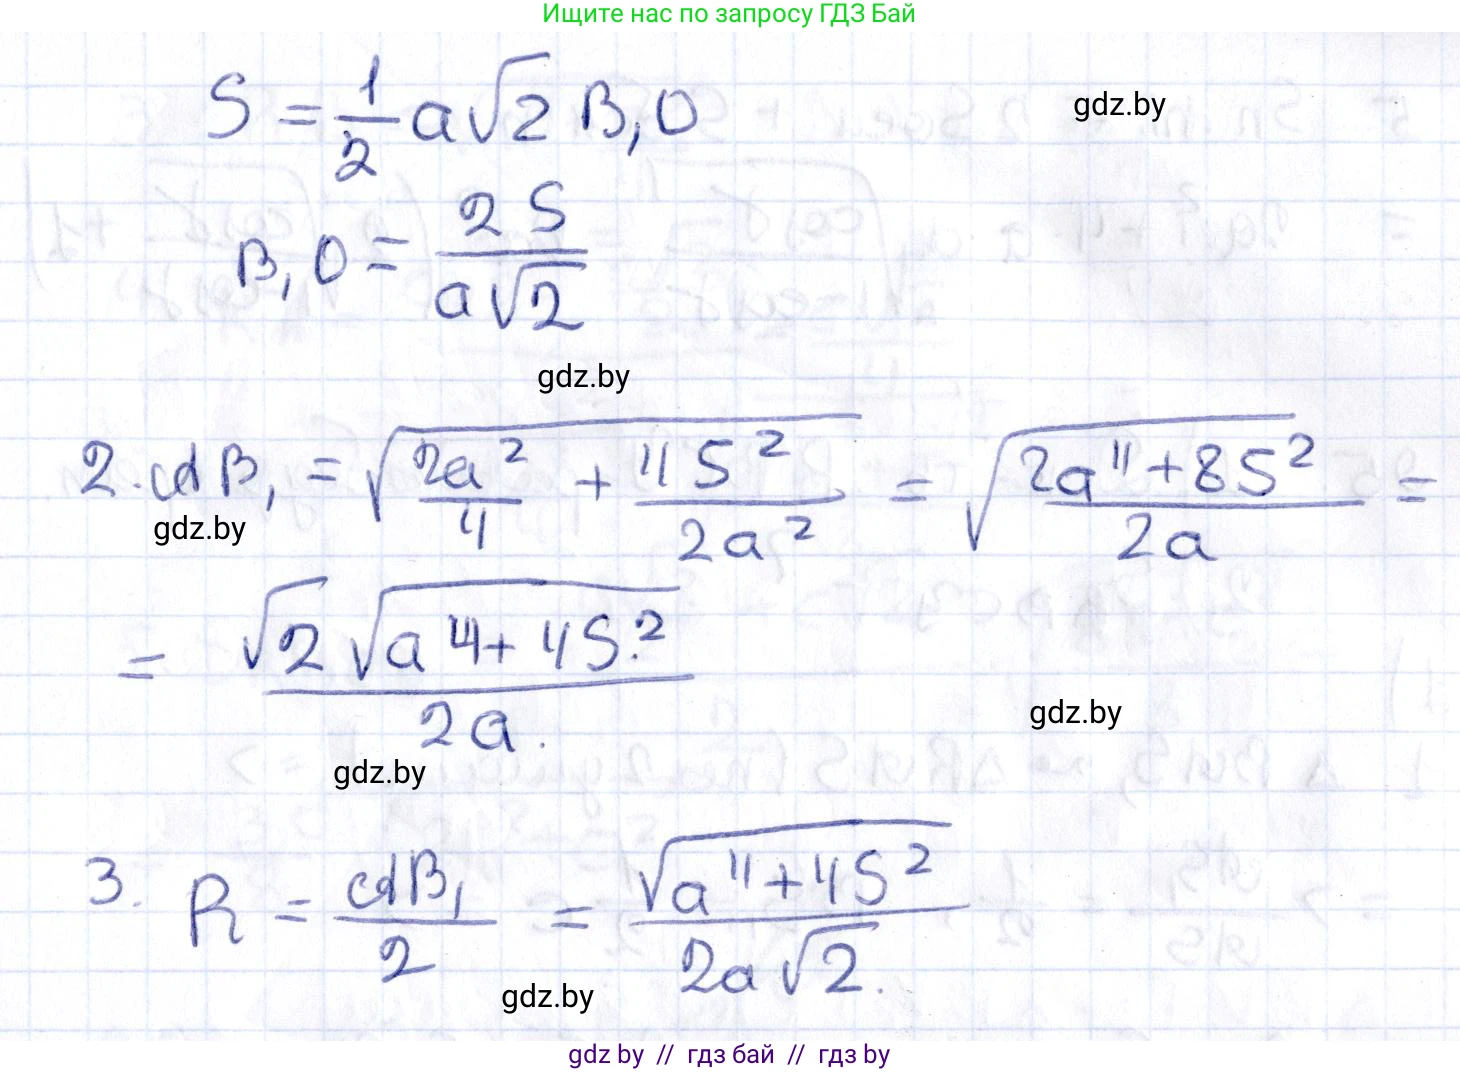 Ищите нас по запросу ГДЗ Бай
S = 1/2 a√2 B₁O
gdz.by
B₁O = 2S/(a√2)
gdz.by
2. AB₁ = √(2a²/4 + 4S²/(2a²)) = √(2a⁴+8S²)/(2a) =
gdz.by
= √2 √(a⁴ + 4S²)/(2a).
gdz.by
gdz.by
3. R = AB₁/2 = √(a⁴+4S²)/(2a√2).
gdz.by
gdz by // гдз бай // гдз by